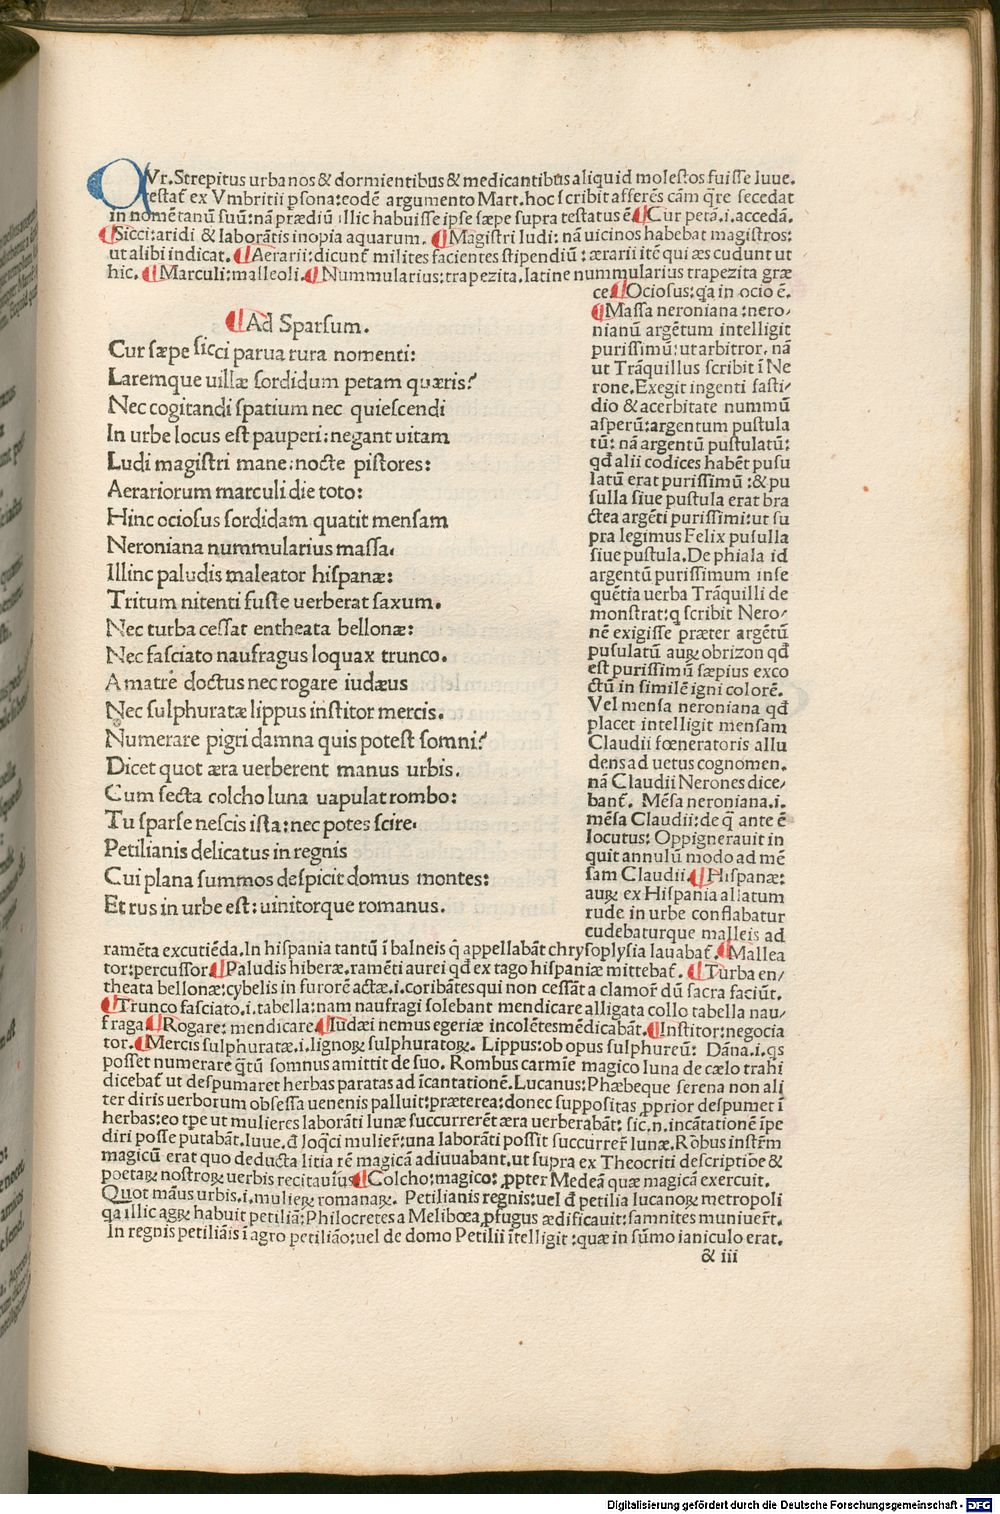 QVr. Strepitus urbanos & dormientibus & medicantibus aliquid molestos fuisse Iuue.
testať ex Vmbritii psona: eodē argumento Mart. hoc scribit afferēs cām qr̄e secedat
in nomētanū suū: nā prædiū illic habuisse ipse sæpe supra testatus ē. ¶ Cur petā. i. accedā.
¶ Sicci: aridi & laborātis inopia aquarum. ¶ Magistri ludi: nā uicinos habebat magistros:
ut alibi indicat. ¶ Aerarii: dicunť milites facientes stipendiū: ærarii itē qui æs cudunt ut
hic. ¶ Marculi: malleoli. ¶ Nummularius: trapezita. latine nummularius trapezita græ
ce. ¶ Ociosus: qa in ocio ē.
¶ Ad Sparsum.
Cur sæpe sicci parua rura nomenti:
Laremque uillæ sordidum petam quæris?
Nec cogitandi spatium nec quiescendi
In urbe locus est pauperi: negant uitam
Ludi magistri mane: nocte pistores:
Aerariorum marculi die toto:
Hinc ociosus sordidam quatit mensam
Neroniana nummularius massa.
Illinc paludis maleator hispanæ:
Tritum nitenti fuste uerberat saxum.
Nec turba cessat entheata bellonæ:
Nec fasciato naufragus loquax trunco.
A matre doctus nec rogare iudæus
Nec sulphuratæ lippus institor mercis.
Numerare pigri damna quis potest somni?
Dicet quot æra uerberent manus urbis.
Cum secta colcho luna uapulat rombo:
Tu sparse nescis ista: nec potes scire.
Petilianis delicatus in regnis
Cui plana summos despicit domus montes:
Et rus in urbe est: uinitorque romanus.
¶ Massa neroniana: nero/
nianū argētum intelligit
purissimū: ut arbitror, nā
ut Trāquillus scribit ī Ne
rone. Exegit ingenti fasti/
dio & acerbitate nummū
asperū: argentum pustula
tū: nā argentū pustulatū:
qđ alii codices habēt pusu
latū erat purissimū: & pu
sulla siue pustula erat bra
ctea argēti purissimi: ut su
pra legimus Felix pusulla
siue pustula. De phiala id
argentū purissimum inse
quētia uerba Trāquilli de
monstrat: q scribit Nero/
nē exigisse præter argētū
pusulatū auꝝ obrizon qđ
est purissimū sæpius exco
ctū in similē igni colorē.
Vel mensa neroniana qđ
placet intelligit mensam
Claudii fœneratoris allu
dens ad uetus cognomen.
nā Claudii Nerones dice/
banť. Mēsa neroniana. i.
mēsa Claudii: de q̄ ante ē
locutus: Oppignerauit in
quit annulū modo ad mē
sam Claudii. ¶ Hispanæ:
auꝝ ex Hispania allatum
rude in urbe conflabatur
cudebaturque malleis ad
ramēta excutiēda. In hispania tantū ī balneis q̄ appellabāt chrysoplysia lauabať. ¶ Mallea
tor: percussor. ¶ Paludis hiberæ. ramēti aurei qđ ex tago hispaniæ mittebať. ¶ Turba en/
theata bellonæ: cybelis in furorē actæ. i. coribātes qui non cessāt a clamoř dū sacra faciūt.
¶ Trunco fasciato. i. tabella: nam naufragi solebant mendicare alligata collo tabella nau/
fraga ¶ Rogare: mendicare. ¶ Iudæi nemus egeriæ incolētes mēdicabāt. ¶ Institor: negocia
tor. ¶ Mercis sulphuratæ. i. lignoꝝ sulphuratoꝝ. Lippus: ob opus sulphureū: Dāna. i. qs
posset numerare q̄tū somnus amittit de suo. Rombus carmīe magico luna de cælo trahi
dicebať ut despumaret herbas paratas ad īcantationē. Lucanus: Phæbeque serena non ali
ter diris uerborum obsessa uenenis palluit: præterea: donec suppositas ꝓprior despumet ī
herbas: eo tpe ut mulieres laborāti lunæ succurrerēt æra uerberabāt: sic. n. incātationē īpe
diri posse putabāt. Iuue. đ loqci mulieř: una laborāti possit succurreř lunæ. Rōbus instřm
magicū erat quo deducta litia rē magicā adiuuabant. ut supra ex Theocriti descriptiōe &
poetaꝝ nostroꝝ uerbis recitauīus ¶ Colcho: magico: ꝓpter Medeā quæ magicā exercuit.
Quot māus urbis. i. mulieꝝ romanaꝝ. Petilianis regnis: uel đ petilia lucanoꝝ metropoli
qa illic agꝝ habuit petiliā: Philocretes a Melibœa ꝓfugus ædificauit: samnites muniueřt.
In regnis petiliāis ī agro petiliāo: uel de domo Petilii ītelligit: quæ in sūmo ianiculo erat.
& iii
Digitalisierung gefördert durch die Deutsche Forschungsgemeinschaft - DFG